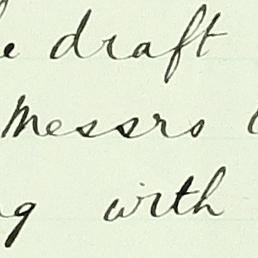 e draft
Messrs
g with